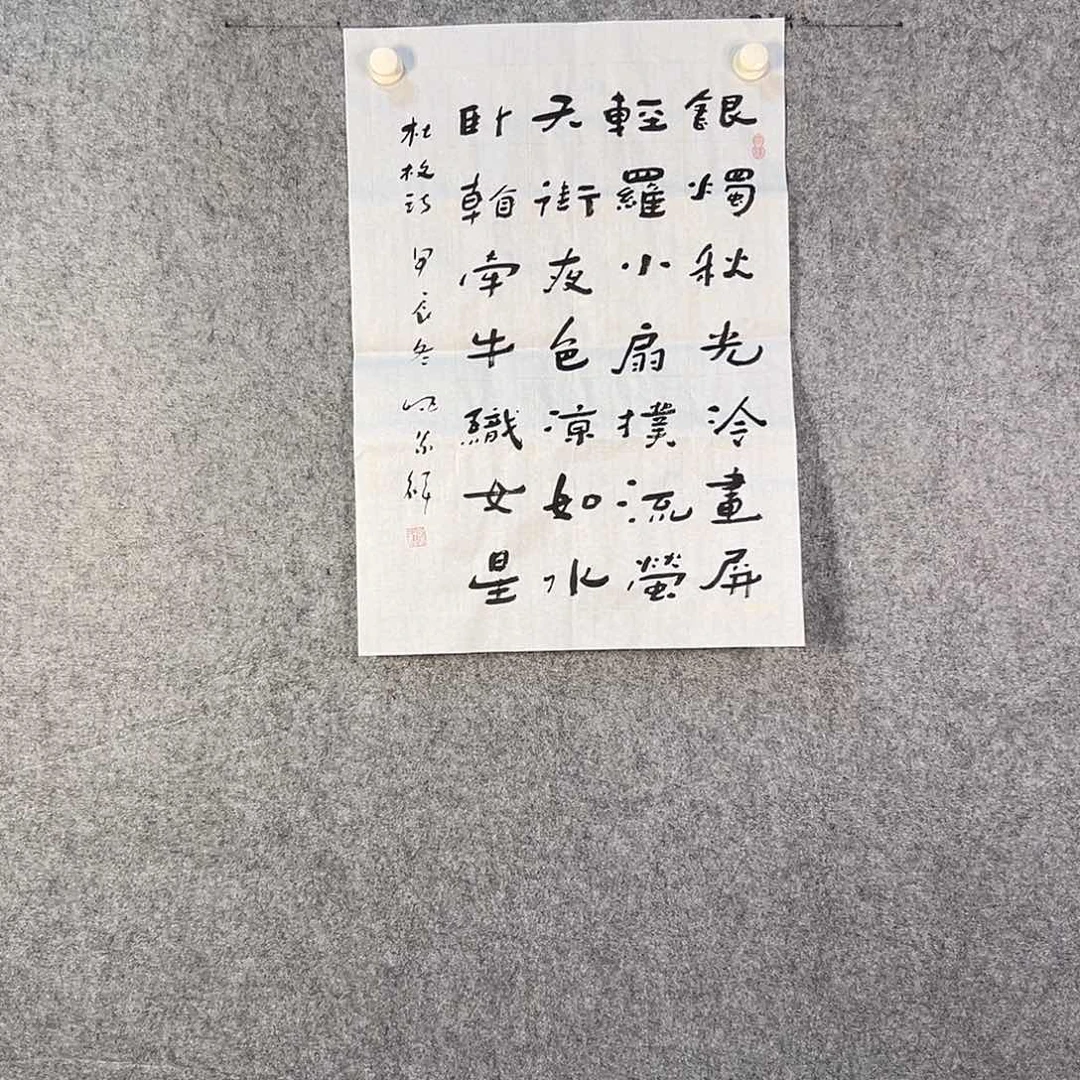 銀燭秋光冷畫屏
輕羅小扇撲流螢
天街夜色涼如水
卧看牽牛織女星
杜牧詩 甲辰冬